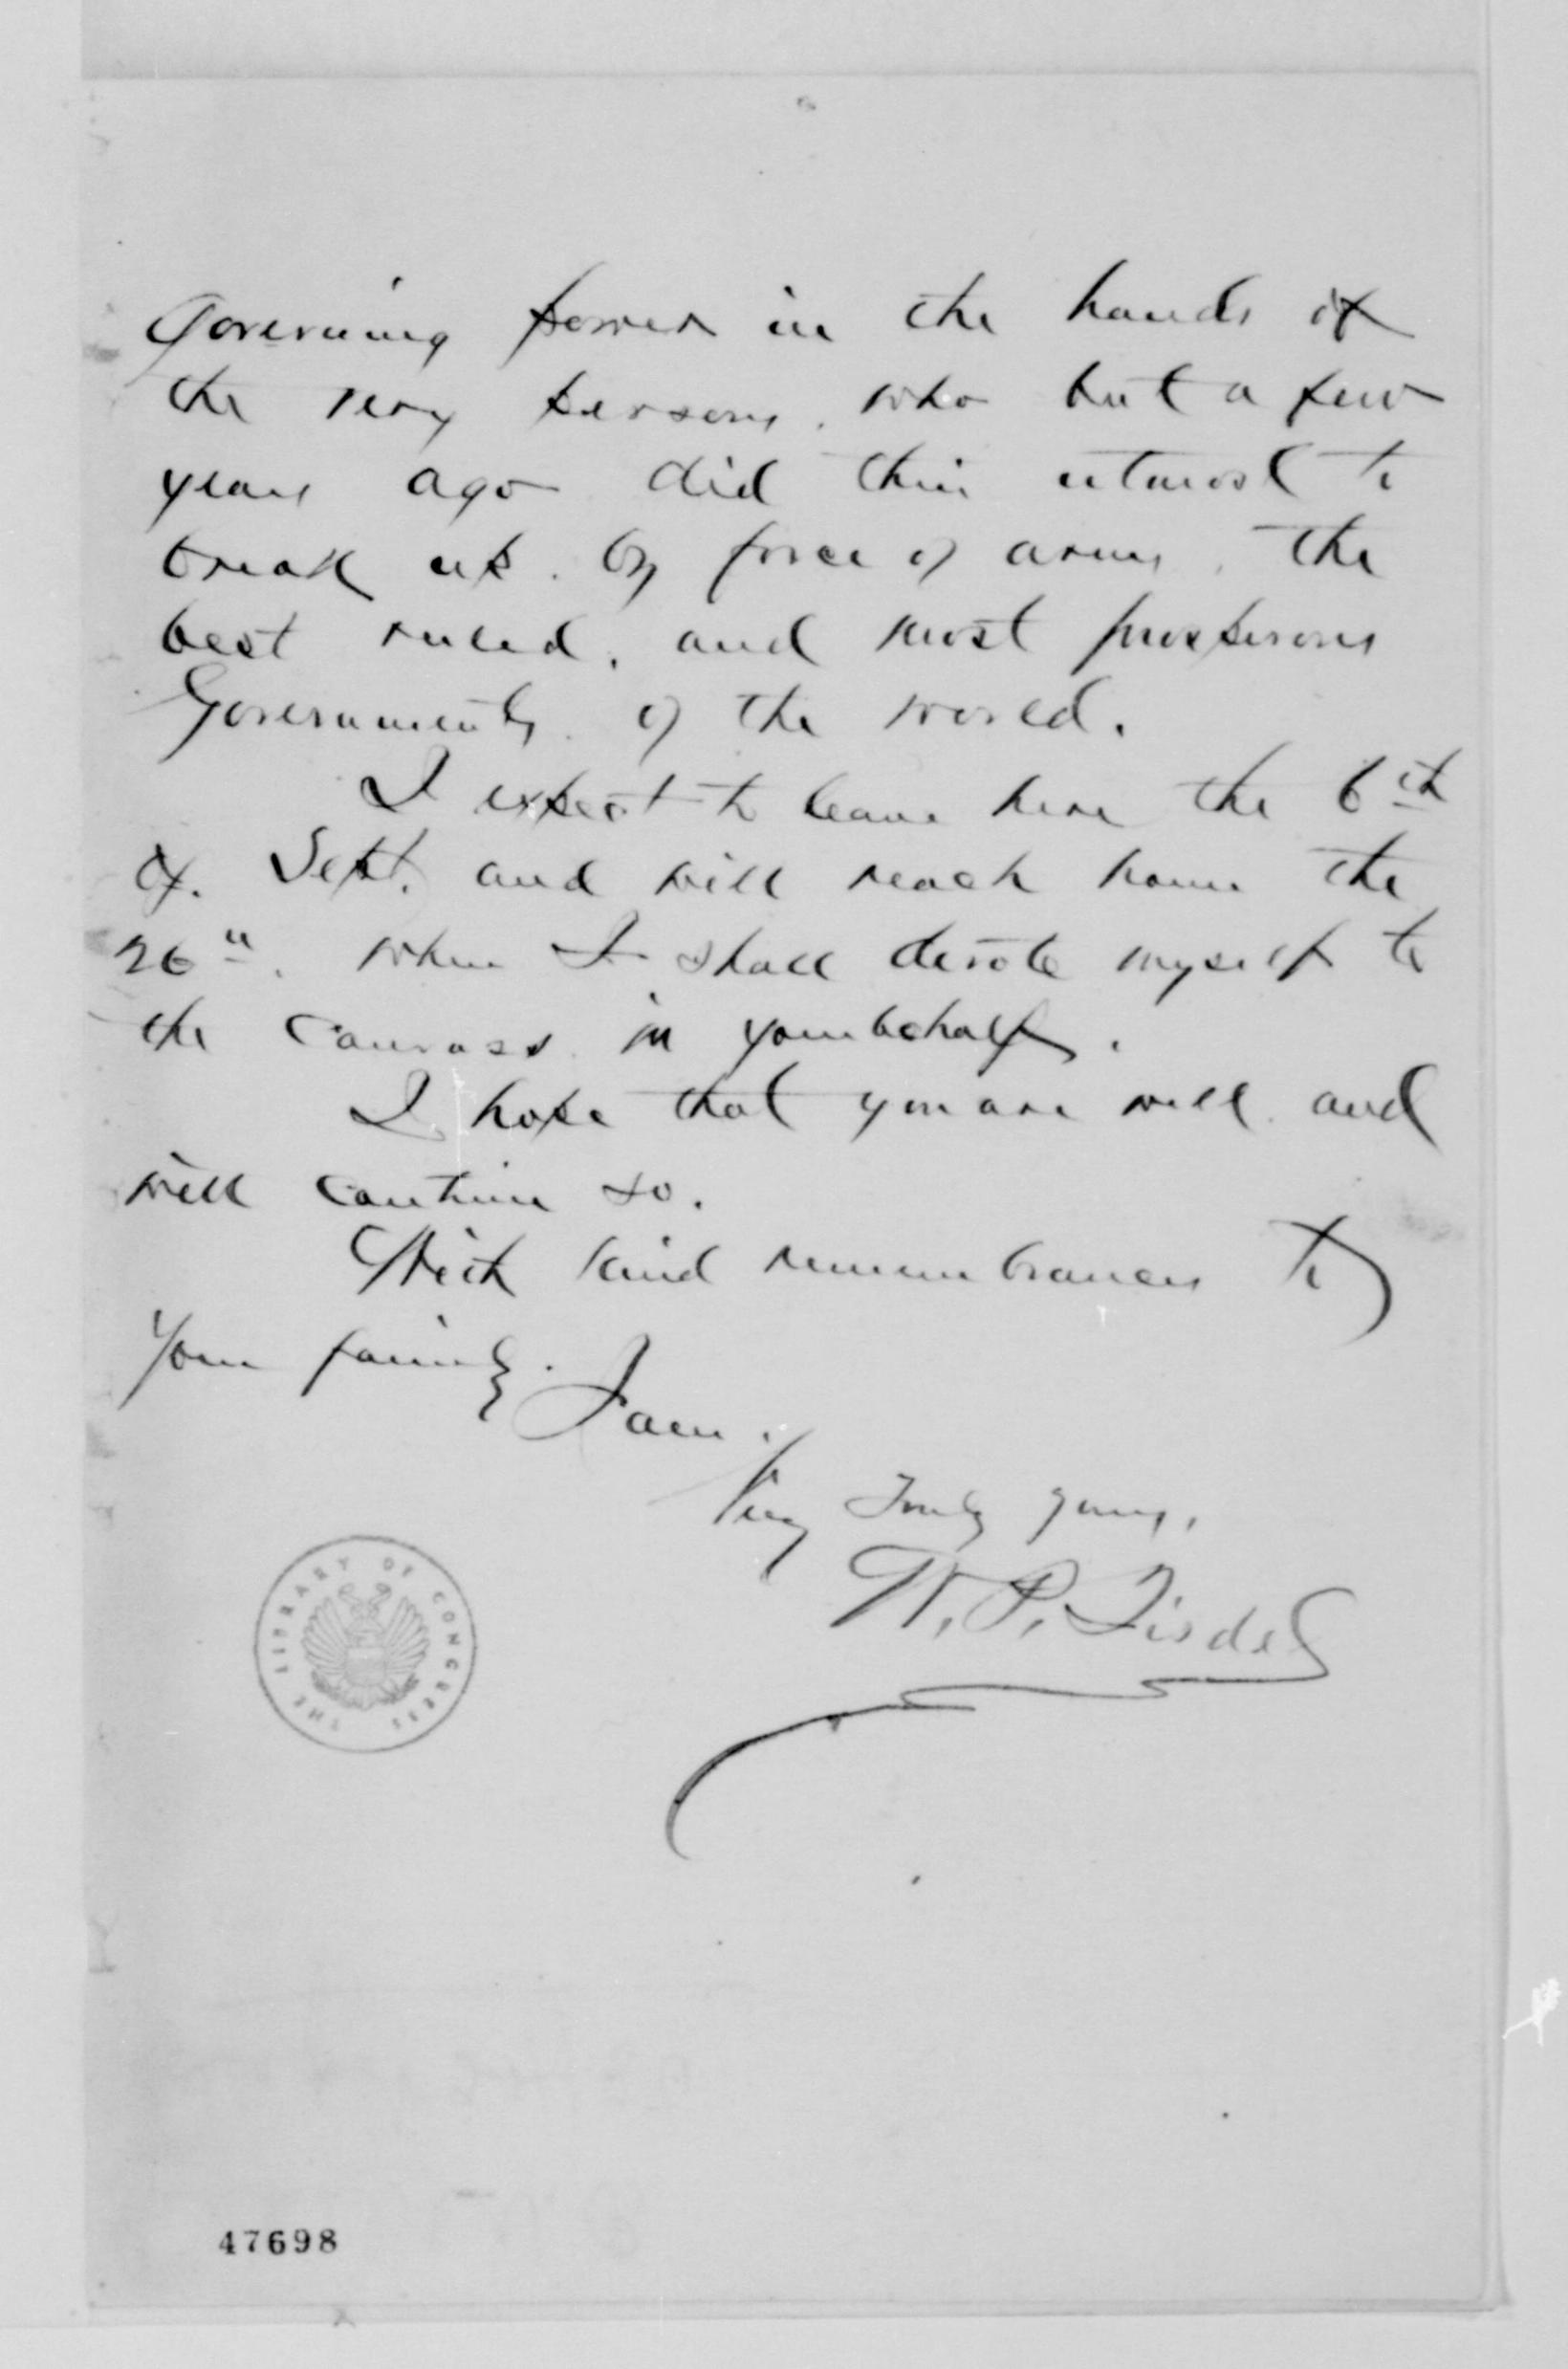 Governing power in the hands of
the very persons, who but a few
years ago did their utmost to
break up. by force of arms, the
best ruled, and most prosperous
Governments. of the world.
I expect to leave here the 6th
of. Sept. and will reach home the
26". when I shall devote myself to
the canvass in your behalf.
I hope that you are well and
will continue so.
With kind remembrances to
Your family. I am.
Very Truly yours,
W. P. Tisdel
THE LIBRARY OF CONGRESS
47698